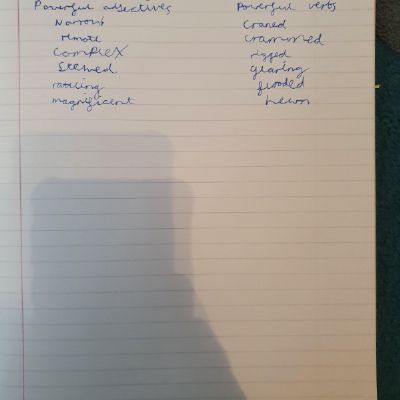 Powerful adjectives Powerful verbs
Narrow Craned
remote crammed
complex rigged
Stewed glaring
rattling flooded
magnificent hewn